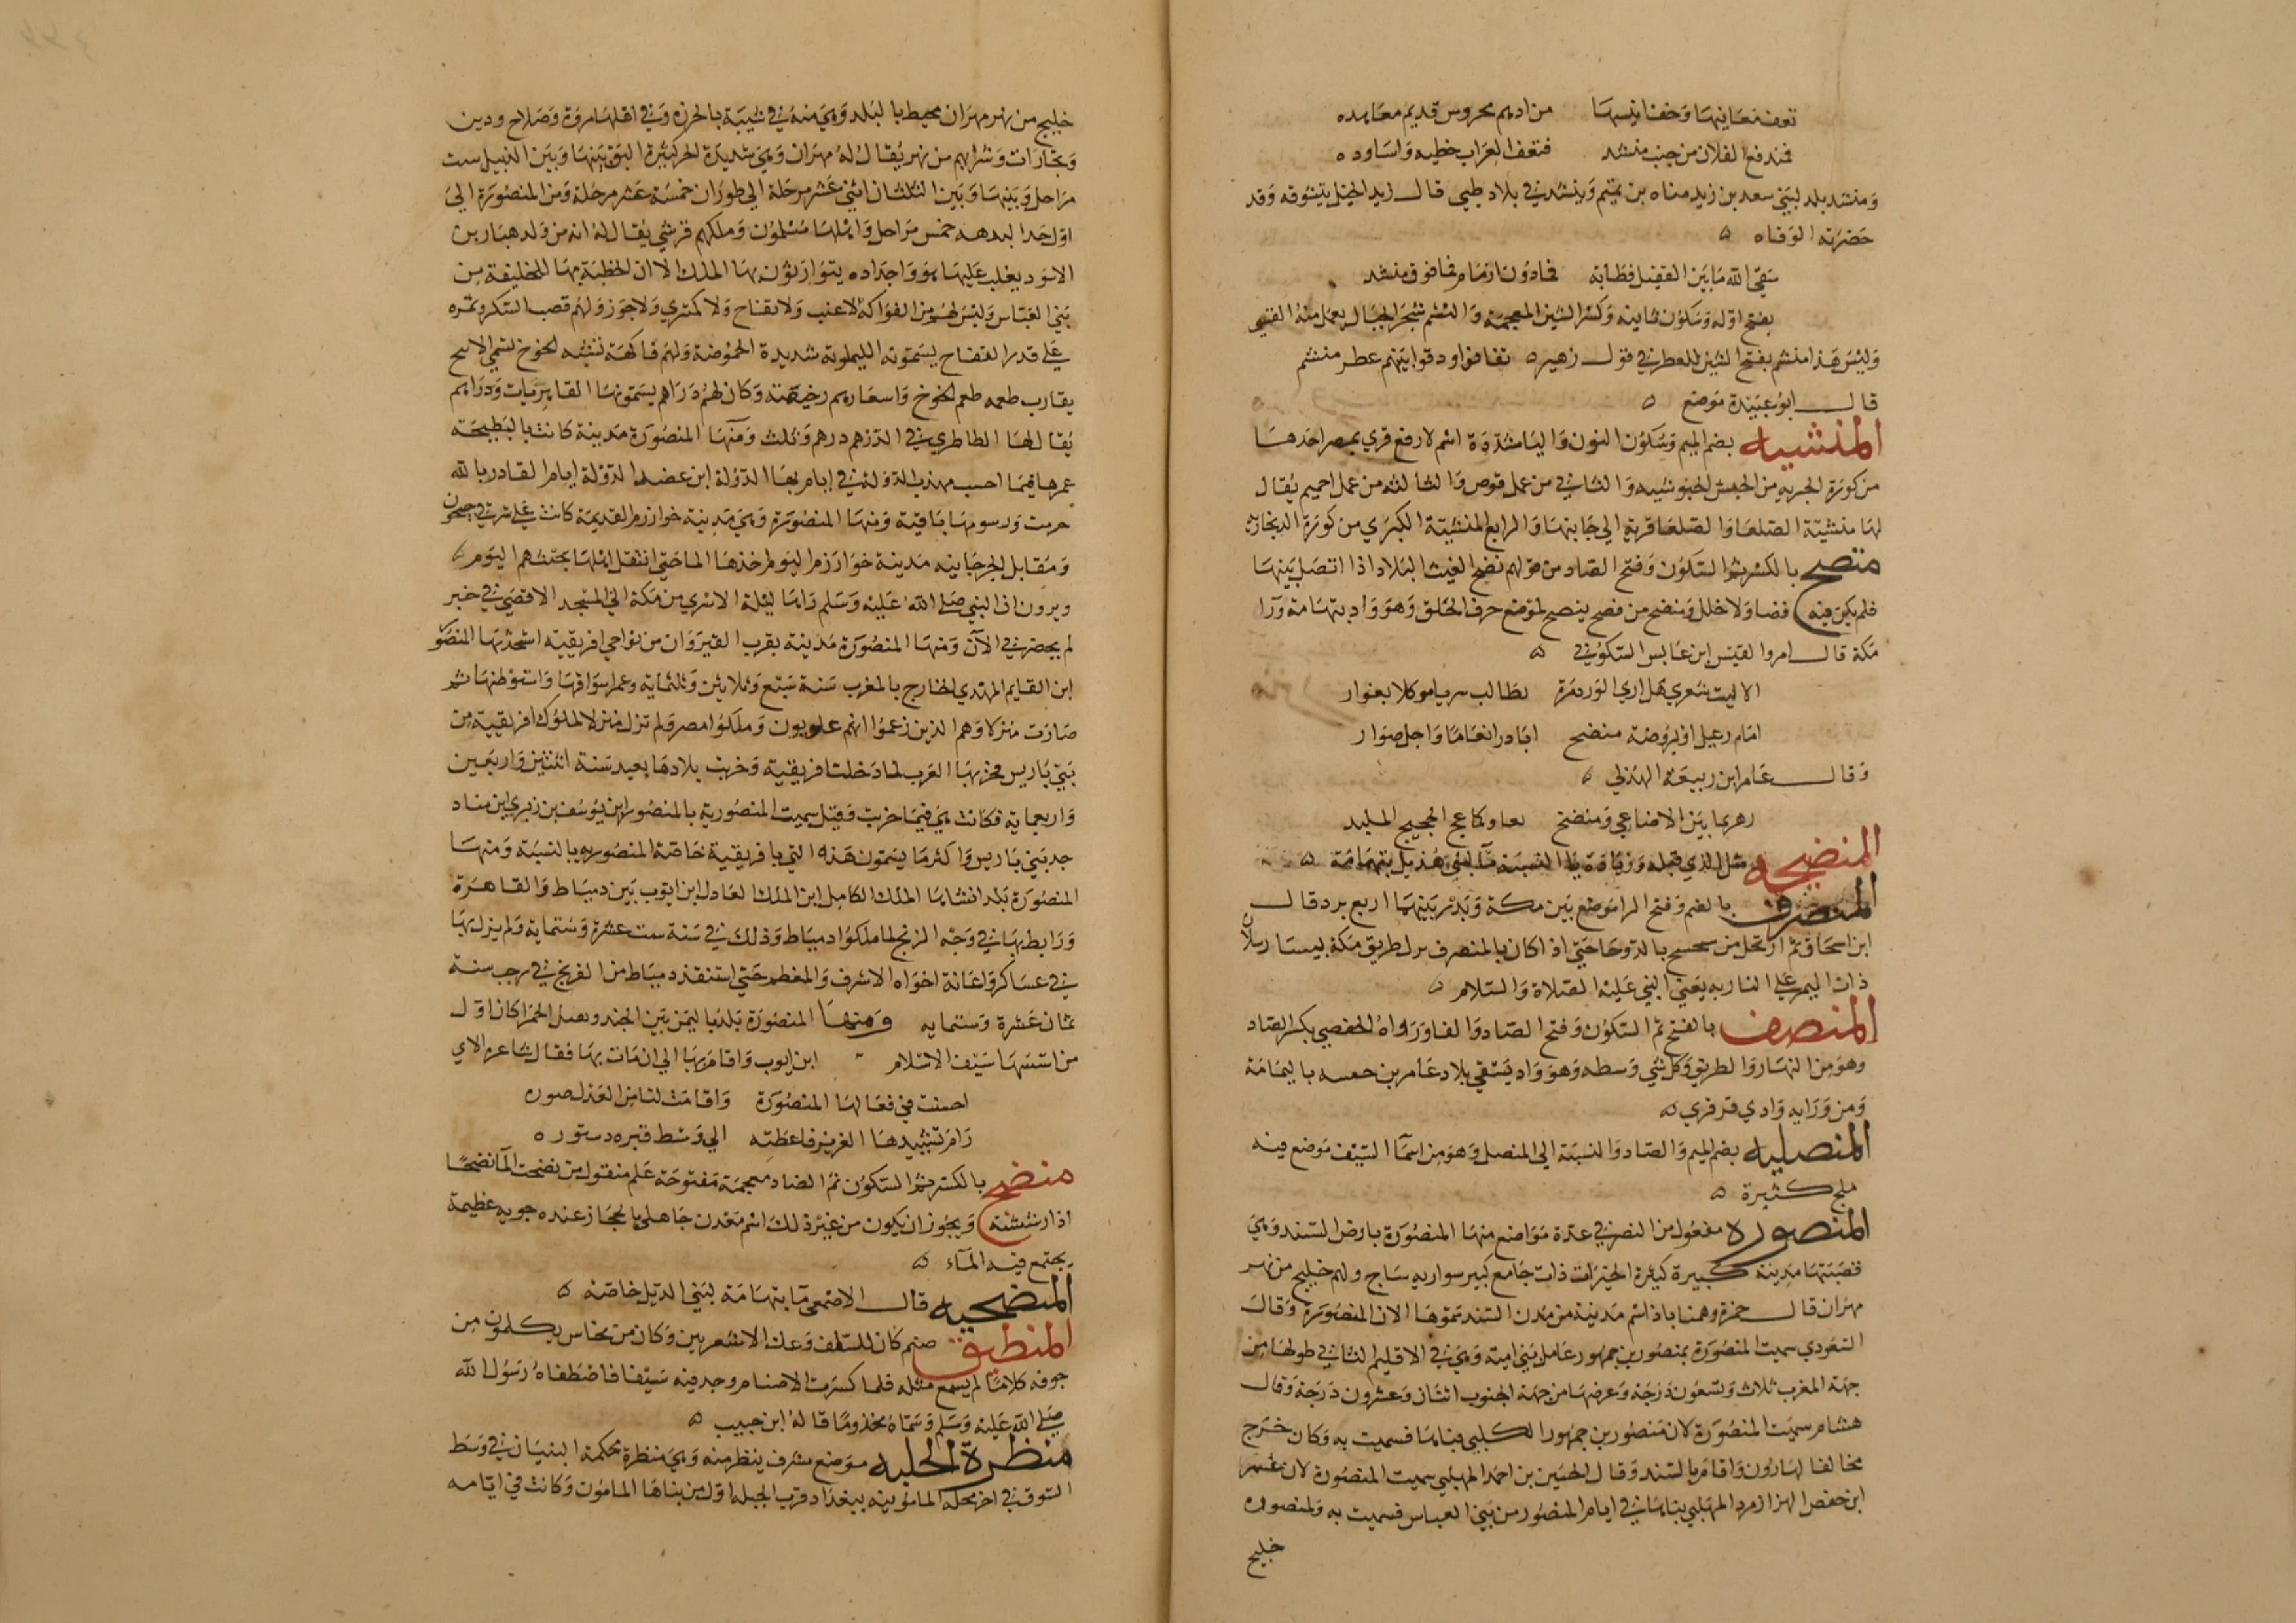 تعف نعافيها وخفا بيسها من ادهم محروس قديم معاهده
فمندفع الفلان من جنب منشد فنعف الغراب خطبه واساوده
ومنشد بلد لبني سعد بن زيد مناه بن تميم وبنشد في بلاد طيي قال زيد الخيل يتشوقه وقد
حضرته الوفاه
سقى الله ما بين القفيل فطابة فما دون ارمام فما فوق منشد
بفتح اوله وسكون ثانيه وكسر الشين المعجمة والنشم شجر الجبال يعمل منه القسي
وليس هذا منشم بفتح الشين للعطر في قول زهير تفانوا ودقوا بينهم عطر منشم
قال ابو عبيدة موضع
المنشيه بضم الميم وسكون النون واليا مشددة اسم لاربع قري بمصر احدها
من كورة الجيزيه من الحبش الجنوبيه والثاني من عمل قوص والثالثه من عمل اخميم يقال
لها منشية الصلعا والصلعا قرية الي جانبها والرابع المنشية الكبري من كورة الدنجاويه
منصح بالكسر ثم السكون وفتح الصاد من قولهم نصح الغيث البلاد اذا اتصل بينها
فلم يكن فيه فضا ولا خلل ومنصح من نصح ينصح لموضع حرف الحلق وهو واد بتهامة ورا
مكة قال امروا القيس ابن عابس السكوني
الا ليت شعري هل اري الورد مرة يطالب سربا موكلا بغوار
امام رعيل او بروضة منصح ابادر انعاما واجل صوار
وقال عامر ابن ربيعة الهذلي
المنضيحه مثل الذي قبله وزيادة يا النسبة ما لبني هذيل بتهامة
المنصرف بالضم وفتح الرا موضع بين مكة وبدر بينهما اربع برد قال
ابن اسحاق ثم ارتحل من سجسج بالروحا حتي اذا كان بالمنصرف ترك طريق مكة بيسار وسلك
ذات اليمين علي النازيه يعني النبي عليه الصلاة والسلام
المنصف بالفتح ثم السكون وفتح الصاد والفا ورواه الحفصي بكسر الصاد
وهو من النهار والطريق وكل شي وسطه وهو واد يسقي بلاد عامر بن حنيفه باليمامة
ومن ورايه وادي قرقري
المنصليه بضم الميم والصاد والنسبة الى المنصل وهو من اسما السيف موضع فيه
ملح كثيرة
المنصوره مفعول من النصر في عدة مواضع منها المنصورة بارض السند وهي
قصبتها مدينة كبيرة كثيرة الخيرات ذات جامع كبير سواريه ساج ولهم خليج من نهر
مهران قال حمزة وهمناباذ اسم مدينة من مدن السند سموها الان المنصورة وقال
المسعودي سميت المنصورة بمنصور بن جمهور عامل بني امية وهي في الاقليم الثاني طولها من
جهة المغرب ثلاث وتسعون درجة وعرضها من جهة الجنوب اثنان وعشرون درجة وقال
هشام سميت المنصورة لان منصور بن جمهور الكلبي بناها فسميت به وكان خرج
مخالفا لهارون واقام بالسند وقال الحسين بن احمد المهلبي سميت المنصورة لان عمر
ابن حفص الهزازمرد المهلبي بناها في ايام المنصور من بني العباس فسميت به وللمنصوره
خليج
خليج من نهر مهران محيط بالبلد وهي منه في شبيه بالجزيرة وفي اهلها مروة وصلاح ودين
وتجارات وشرابهم من نهر يقال له مهران وهي شديدة الحر كثيرة البق بينها وبين الديبل ست
مراحل وبينها وبين الملتان اثني عشر مرحلة الي طوران خمسة عشر مرحلة ومن المنصورة الي
اول حد البدهه خمس مراحل واهلها مسلمون وملكهم قرشي يقال له انه من ولد هبار بن
الاسود تغلب عليها هو واجداده يتوارثون بها الملك الا ان الخطبة بها للخليفة من
بني العباس وليس لهم من الفواكه لا عنب ولا تفاح ولا كمثري ولا جوز ولهم قصب السكر وثمره
علي قدر التفاح يسمونه الليمونه شديدة الحموضة ولهم فاكهة تشبه الخوخ تسمي الانبج
يقارب طعمه طعم الخوخ واسعارهم رخيصة وكان لهم دراهم يسمونها القاهريات ودراهم
يقال لها الطاطري في الدرهم درهم وثلث ومنها المنصورة مدينة كانت بالبطيحة
عمرها فيما احسب مهذب الدولة في ايام بها الدولة ابن عضد الدولة ايام القادر بالله
خربت ورسومها باقية ومنها المنصورة وهي مدينة خوارزم القديمة كانت علي شرقي جيحون
ومقابل الجرجانيه مدينة خوارزم اليوم اخذها الما حتى انتقل اهلها بحيث هم اليوم
ويروون ان النبي صلى الله عليه وسلم راها ليلة الاسري من مكة الي المسجد الاقصي في خبر
لم يحضرني الآن ومنها المنصورة مدينة بقرب القيروان من نواحي افريقية استحدثها المنصور
ابن القايم المهدي الخارج بالمغرب سنة سبع وثلاثين وثلثماية وعمر اسواقها واستوطنها ثم
صارت منزلا وهم الذين زعموا انهم علويون وملكوا مصر ولم تزل منزلا لملوك افريقية من
بني باديس فخربها العرب لما دخلت افريقية وخربت بلادها بعيد سنة اثنتين واربعين
واربعماية فكانت هي فيما خربت وقيل سميت المنصورية بالمنصور ابن يوسف بن زيري ابن مناد
جد بني باديس واكثر ما يسمون هذه التي بافريقية خاصة المنصوريه بالنسبة ومنها
المنصورة بلد انشاها الملك الكامل ابن الملك العادل ابن ايوب بين دمياط والقاهرة
ورابط بها في وجه الافرنج لما ملكوا دمياط وذلك في سنة ست عشرة وستماية ولم يزل بها
في عساكر واعانة اخواه الاشرف والمعظم حتي استنقذ دمياط من الفرنج في رجب سنة
ثمان عشرة وستمايه ومنها المنصورة بلد باليمن بين الجند وبقيل الحمرا كان اول
من اسسها سيف الاسلام ابن ايوب واقام بها الي ان مات بها فقال شاعره الابي
احسنت في فعالها المنصورة واقامت لنا من العدل صوره
رام تشييدها العزيز فاعطته الي وسط قبره دستوره
منضح بالكسر ثم السكون ثم الضاد معجمة مفتوحة علم منقول من نضحت الما نضحا
اذا رششته ويجوز ان يكون من غير ذلك اسم معدن جاهلي بالحجاز عنده جوبه عظيمة
يجتمع فيه الماء
المنضحيه قال الاصمعي ما بتهامة لبني الديل خاصة
المنطبق صنم كان للسلف وعك والاشعريين وكان من نحاس يكلمون من
جوفه كلاما لم يسمع مثله فلما كسرت الاصنام وجد فيه سيفا فاصطفاه رسول الله
صلى الله عليه وسلم وسماه مخذوما قاله ابن حبيب
منظرة الحلبه موضع مشرف ينظر منه وهي منظرة محكمة البنيان في وسط
السوق في اخر محلة المامونيه ببغداد قرب الحلبه اول من بناها المامون وكانت في ايامه